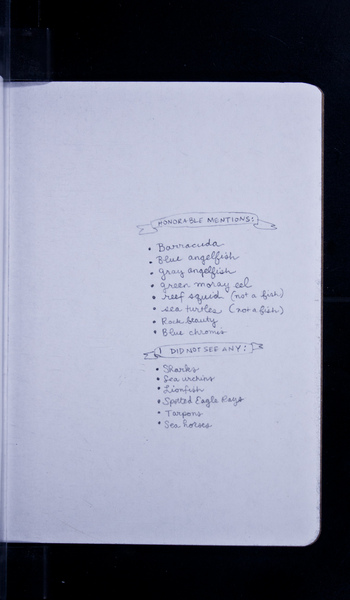 HONORABLE MENTIONS:
• Barracuda
• Blue angelfish
• gray angelfish
• green moray eel
• reef squid (not a fish)
• sea turtles (not a fish)
• Rock beauty
• Blue chromis
DID NOT SEE ANY:
• Sharks
• Sea urchins
• Lionfish
• Spotted Eagle Rays
• Tarpons
• Sea horses